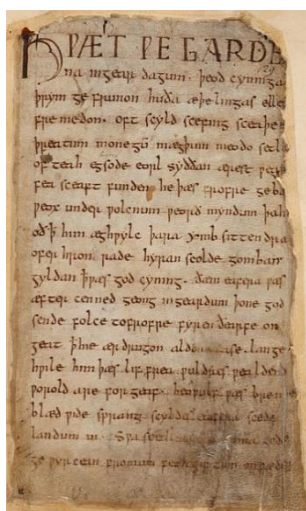 HǷÆT ǷE GARDE
na ingear dagum. þeod cyninga
þrym ge frunon huða æþelingas elle
fremedon. oft scyld scefing sceaþe
þreatum monegū mægþum meodo setla
of teah egsode eorl syððan ærest ƿe
fea sceaft funden he þæs frofre geba
ƿeox under ƿolcnum ƿeorð myndum þah
oð þ him æghƿylc þara ymb sittendra
ofer hron rade hyran scolde gomban
gyldan þæt ƿæs god cyning. ðæm eafera ƿæs
æfter cenned geong ingeardum þone god
sende folce tofrofre fyren ðearfe on
geat þ hie ær drugon aldor ase. lange
hƿile him þæs lif frea ƿuldres ƿealdend
ƿorold are for geaf. beoƿulf ƿæs breme
blæd ƿide sprang scyldes eafera scede
landum in. Sƿa
ge ƿyrcean fromum